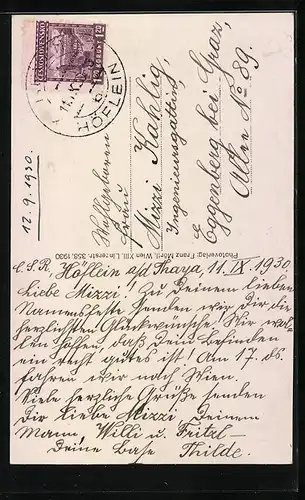 ČESKOSLOVENSKO
HÖFLEIN
12.9.1930.
Wohlgeboren
Frau
Mizzi Kahlig,
Ingenieursgattin,
Eggenberg bei Graz,
Allee No 89.
Photoverlag: Franz Mörtl, Wien XIII. Linzerstr. 358, 1930
C.S.R., Höflein a/d Thaya, 11.IX.1930
Liebe Mizzi! Zu Deinem lieben
Namensfeste senden wir Dir die
herzlichsten Glückwünsche! Wir wol-
len hoffen, daß Dein Befinden
ein recht gutes ist! Am 17. ds.
fahren wir nach Wien.
Viele herzliche Grüße senden
Dir liebe Mizzi, Deinem
Mann, Willi u. Fritzl –
Deine Base Thilde.